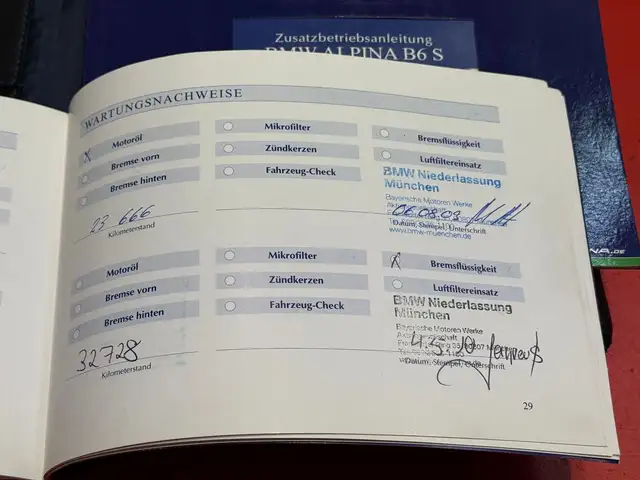 Zusatzbetriebsanleitung
BMW ALPINA B6 S
WARTUNGSNACHWEISE
X Motoröl
Mikrofilter
Bremsflüssigkeit
Bremse vorn
Zündkerzen
Luftfiltereinsatz
Bremse hinten
Fahrzeug-Check
BMW Niederlassung
München
Bayerische Motoren Werke
06.08.09
23 666
Kilometerstand
Datum, Stempel, Unterschrift
www.bmw-muenchen.de
Motoröl
Mikrofilter
X Bremsflüssigkeit
Bremse vorn
Zündkerzen
Luftfiltereinsatz
Bremse hinten
Fahrzeug-Check
BMW Niederlassung
München
Bayerische Motoren Werke
32728
Kilometerstand
Datum, Stempel, Unterschrift
29